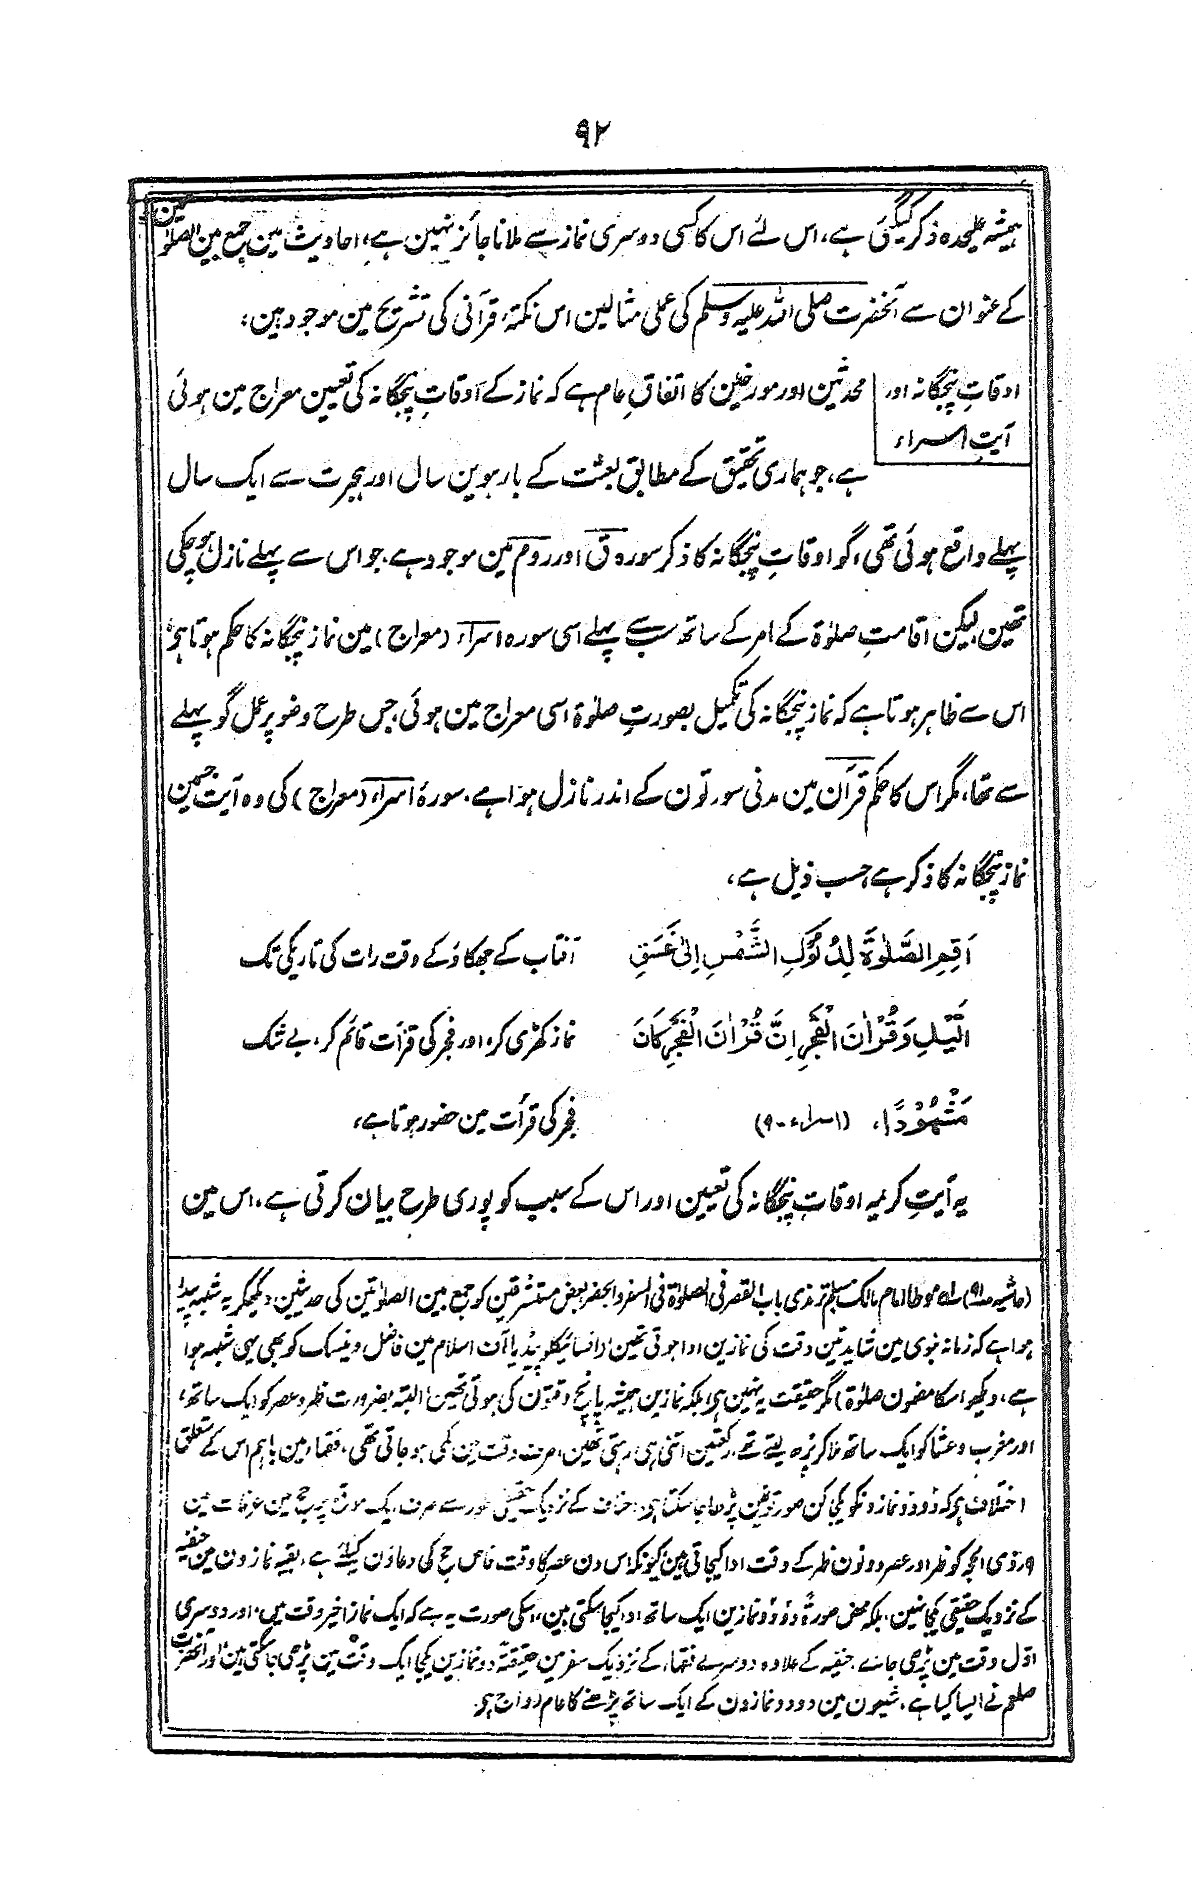 ۹۲
ہمیشہ علیحدہ ذکر کیگئی ہے، اس لئے اس کا کسی دوسری نماز سے ملانا جائز نہین ہے، احادیث مین جمع بین الصلوٰتین
کے عنوان سے آنحضرت صلی اللہ علیہ وسلم کی عملی مثالین اس نکتۂ قرآنی کی تشریح مین موجود ہین،
اوقاتِ پنجگانہ اور
آیتِ اسراء
محدثین اور مورخین کا اتفاقِ عام ہے کہ نماز کے اوقاتِ پنجگانہ کی تعیین معراج مین ہوئی
ہے، جو ہماری تحقیق کے مطابق بعثت کے بارہوین سال اور ہجرت سے ایک سال
پہلے واقع ہوئی تھی، گو اوقاتِ پنجگانہ کا ذکر سورہ قٓ اور روم مین موجود ہے، جو اس سے پہلے نازل ہو چکی
تھین لیکن اقامتِ صلوٰۃ کے امر کے ساتھ سب سے پہلے اسی سورہ اسراء (معراج) مین نماز پنجگانہ کا حکم ہوتا ہی،
اس سے ظاہر ہوتا ہے کہ نماز پنجگانہ کی تکمیل بصورتِ صلوٰۃ اسی معراج مین ہوئی، جس طرح وضو پر عمل گو پہلے
سے تھا، مگر اس کا حکم قرآن مین مدنی سورتون کے اندر نازل ہوا ہے، سورۂ اسراء (معراج) کی وہ آیت جسمین
نماز پنجگانہ کا ذکر ہے حسب ذیل ہے،
اَقِمِ الصَّلٰوةَ لِدُلُوْكِ الشَّمْسِ اِلٰى غَسَقِ آفتاب کے جھکاؤ کے وقت رات کی تاریکی تک
الَّيْلِ وَقُرْاٰنَ الْفَجْرِ اِنَّ قُرْاٰنَ الْفَجْرِ كَانَ نماز کھڑی کر، اور فجر کی قرأت قائم کر، بے شک
مَشْهُوْدًا، (اسراء۔۹) فجر کی قرأت مین حضور ہوتا ہے،
یہ آیتِ کریمہ اوقاتِ پنجگانہ کی تعیین اور اس کے سبب کو پوری طرح بیان کرتی ہے، اس مین
(حاشیہ ص۹۱) ۱ موطا امام مالک مسلم ترمذی باب القصر فی الصلوٰۃ فی السفر والحضر بعض مستشرقین کو جمع بین الصلوٰتین کی حدثین دیکھکر یہ شبہ پیدا
ہوا ہے کہ زمانہ نبوی مین شاید تین وقت کی نمازین ادا ہوتی تھین، انسائیکلوپیڈیا آف اسلام مین فاضل وینسک کو بھی یہی شبہ ہوا
ہے، دیکھو اسکا مضمون صلوٰۃ) مگر حقیقت یہ نہین ہی، بلکہ نمازین ہمیشہ پانچ وقتون کی ہوتی تھین، البتہ بضرورت ظہر و عصر کو ایک ساتھ،
اور مغرب و عشا کو ایک ساتھ ملا کر پڑھ لیتے تھے، رکعتین اتنی ہی رہتی تھین، صرف وقت مین کمی ہو جاتی تھی، فقہاء مین باہم اس کے متعلق
اختلاف ہی کہ دو دو نمازونکو یکجا کن صورتونمین پڑھا جا سکتا ہی، احناف کے نزدیک حقیقی طور سے صرف ایک موقع پر حج مین عرفات مین
۹ر ذی الحجہ کو ظہر اور عصر دونون ظہر کے وقت ادا کیجاتی ہین کیونکہ اس دن عصر کا وقت خاص حج کی دعاؤن کیلئے ہے، بقیہ نمازون مین حنفیہ
کے نزدیک حقیقی یکجائی نہین، بلکہ محض صورۃً دو دو نمازین ایک ساتھ ادا کیجا سکتی ہین، اسکی صورت یہ ہے کہ ایک نماز اخیر وقت مین، اور دوسری
اوّل وقت مین پڑھی جائے، حنفیہ کے علاوہ دوسرے فقہاء کے نزدیک سفر مین حقیقۃً دو نمازین یکجا ایک وقت مین پڑھی جا سکتی ہین، اور آنحضرت
صلعم نے ایسا کیا ہے، شیعون مین دو دو نمازون کے ایک ساتھ پڑھنے کا عام رواج ہی،